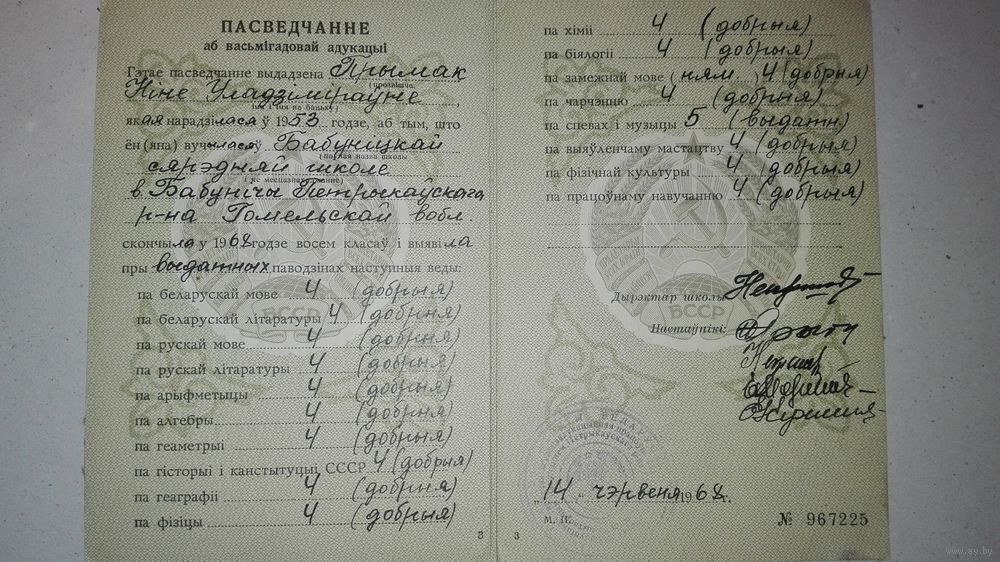 ПАСВЕДЧАННЕ
аб васьмігадовай адукацыі
Гэтае пасведчанне выдадзена Прымак
(прозвішча,
Ніне Уладзіміраўне
імя і імя па бацьку)
якая нарадзілася ў 1953 годзе, аб тым, што
ён (яна) вучылася ў Бабуніцкай
(поўная назва школы
сярэдняй школе
і яе месцазнаходжанне)
в. Бабунічы Петрыкаўскага
р-на Гомельскай вобл.
скончыла у 1968 годзе восем класаў і выявіла
пры выдатных паводзінах наступныя веды:
па беларускай мове 4 (добрыя)
па беларускай літаратуры 4 (добрыя)
па рускай мове 4 (добрыя)
па рускай літаратуры 4 (добрыя)
па арыфметыцы 4 (добрыя)
па алгебры 4 (добрыя)
па геаметрыі 4 (добрыя)
па гісторыі і канстытуцыі СССР 4 (добрыя)
па геаграфіі 4 (добрыя)
па фізіцы 4 (добрыя)
3
па хіміі 4 (добрыя)
па біялогіі 4 (добрыя)
па замежнай мове (ням.) 4 (добрыя)
па чарчэнню 4 (добрыя)
па спевах і музыцы 5 (выдатн)
па выяўленчаму мастацтву 4 (добрыя)
па фізічнай культуры 4 (добрыя)
па працоўнаму навучанню 4 (добрыя)
БССР
БССР
Дырэктар школы
Настаўнікі:
„14" чэрвеня 1968 г.
М. П.
№ 967225
3
www.ay.by